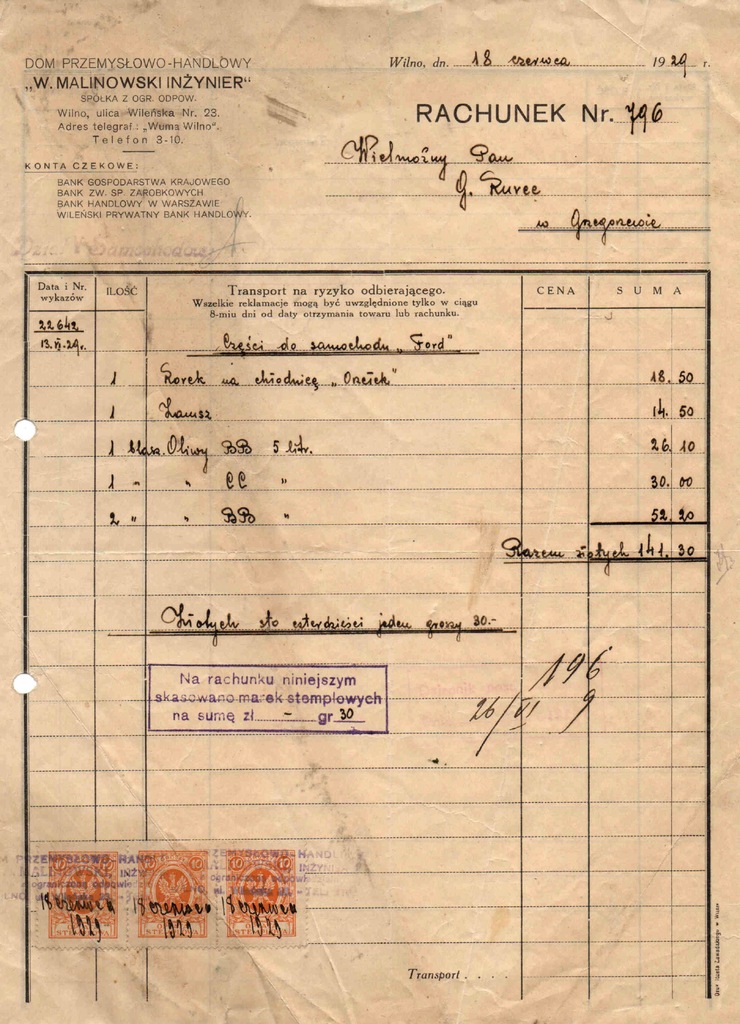 DOM PRZEMYSŁOWO-HANDLOWY
„W. MALINOWSKI INŻYNIER“
SPÓŁKA Z OGR. ODPOW.
Wilno, ulica Wileńska Nr. 23.
Adres telegraf.: „Wuma Wilno“.
Telefon 3-10.
KONTA CZEKOWE:
BANK GOSPODARSTWA KRAJOWEGO
BANK ZW. SP. ZAROBKOWYCH
BANK HANDLOWY W WARSZAWIE
WILEŃSKI PRYWATNY BANK HANDLOWY.
Samochodowy
Wilno, dn. 18 czerwca 1929 r.
RACHUNEK Nr. 796
Wielmożny Pan
G. Kurec
w Grzegorzewie
Data i Nr. wykazów
ILOŚĆ
Transport na ryzyko odbierającego.
Wszelkie reklamacje mogą być uwzględnione tylko w ciągu
8-miu dni od daty otrzymania towaru lub rachunku.
CENA
SUMA
22642
13.VI.29r.
Części do samochodu „Ford"
1 Korek na chłodnicę „Orzełek" 18.50
1 Zamsz 14.50
1 blasz. Oliwy BB 5 litr. 26.10
1 " " CC " 30.00
2 " " BB " 52.20
Razem złotych 141.30
Złotych sto czterdzieści jeden groszy 30.-
Na rachunku niniejszym
skasowano marek stemplowych
na sumę zł. - gr 30
196
26/VI 9
18 czerwca 1929
18 czerwca 1929
18 czerwca 1929
Transport . . . .